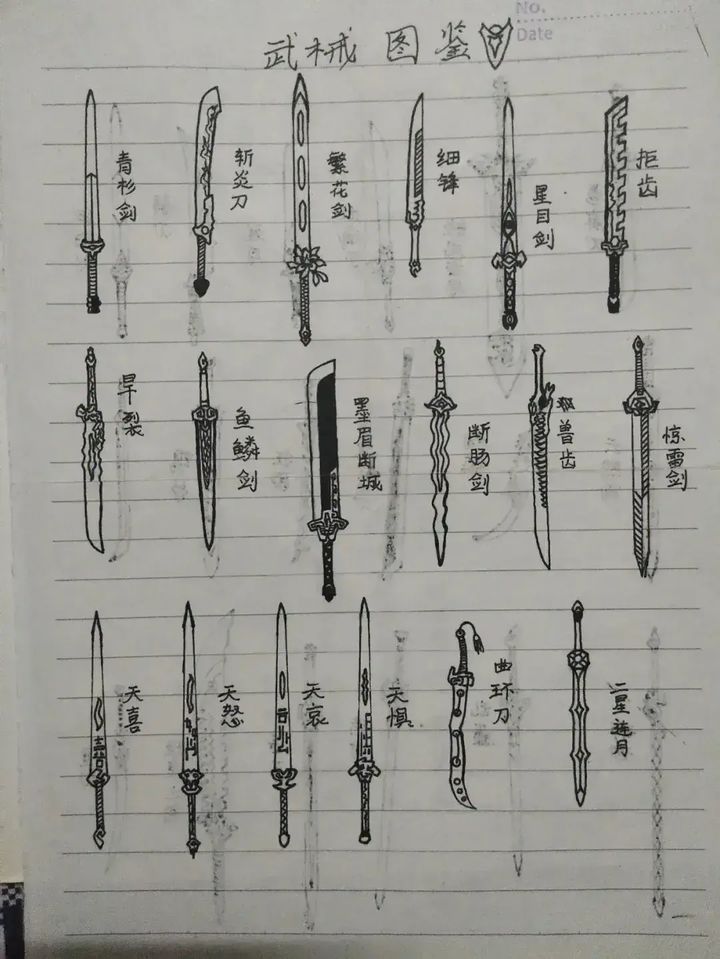 No.
Date
武械图鉴
青杉剑
斩炎刀
繁花剑
细锋
星目剑
拒齿
旱裂
鱼鳞剑
墨眉断城
断肠剑
兽齿
惊雷剑
天喜
天怒
天哀
天惧
曲环刀
二星连月